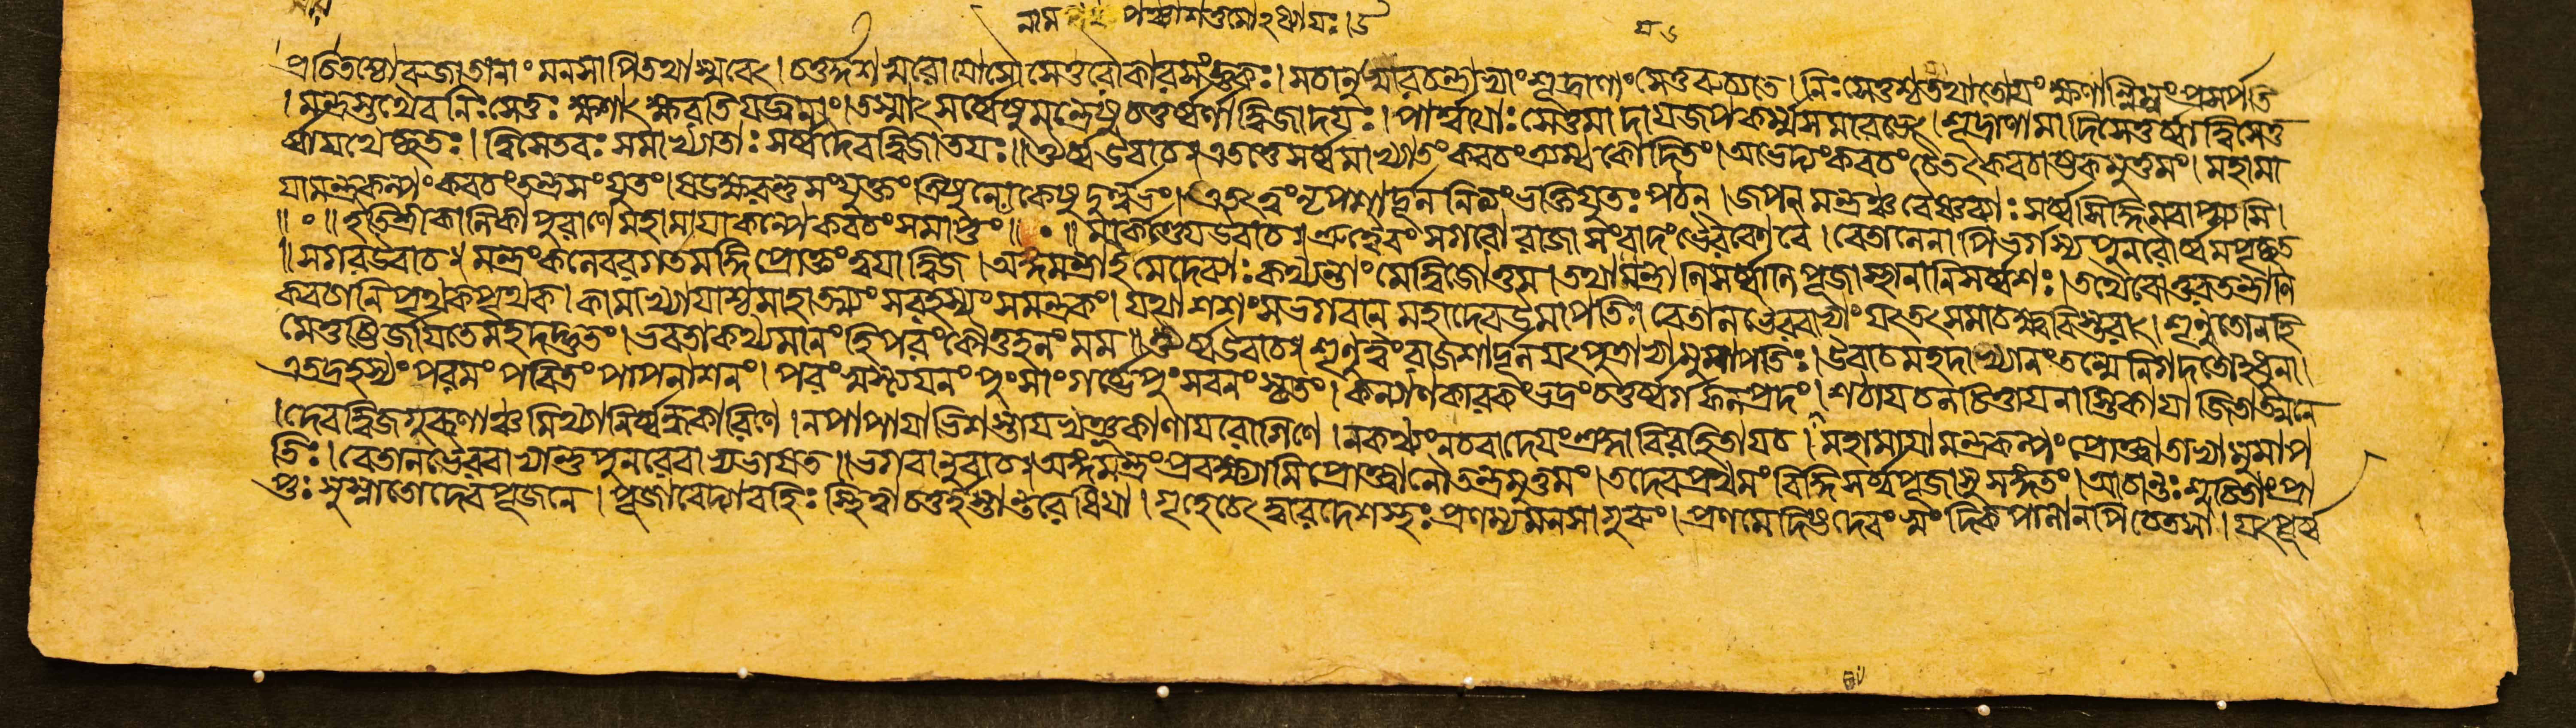 নাম পঞ্চাশত্তমোঽধ্যায়ঃ।
প্রচিতস্থো রুজাতানাং মনসাপি তথা স্মরেৎ। চতুর্দ্দশস্বরো যোসৌ সেতুরৌকারসংজ্ঞকঃ। সচানুস্বারচন্দ্রাভ্যাং শূদ্রাণাং সেতুরুচ্যতে। নিঃসেতুশ্চ তথা তোয়ং ক্ষণান্নিম্নং প্রসর্পতি
। মন্ত্রস্তথৈব নিঃসেতুঃ ক্ষণাৎ ক্ষরতি যজ্বনাং। তস্মাৎ সর্ব্বেষু মন্ত্রেষু চতুর্ব্বর্ণা দ্বিজাদয়ঃ। পার্শ্বয়োঃ সেতুমাদায় জপকর্ম্ম সমারভেৎ। শূদ্রাণামাদিসেতুর্ব্বা দ্বিসেতু
র্ব্বা যথেচ্ছতঃ। দ্বিসেতবঃ সমাখ্যাতাঃ সর্ব্বদৈব দ্বিজাতয়ঃ॥ ঔর্ব্ব উবাচ॥ এতত্তু সর্ব্বমাখ্যাতং কবচং ত্র্যম্বকোদিতং। অভেদ্যং কবচং চৈতৎ কবচাষ্টকমুত্তমং। মহামা
য়ামন্ত্রকল্পং কবচং মন্ত্রসংযুতং। ষড়ক্ষরন্তু সংযুক্তং ত্রিষু লোকেষু দুর্ল্লভং। এতৎ ত্বং নৃপশার্দ্দূল নিত্যং ভক্তিযুতঃ পঠন্। জপন্ মন্ত্রঞ্চ বৈষ্ণব্যাঃ সর্ব্বসিদ্ধিমবাপ্স্যসি।
॥ঃ॥ ইতি শ্রীকালিকাপুরাণে মহামায়াকল্পে কবচং সমাপ্তং॥ঃ॥ মার্কণ্ডেয় উবাচ॥ শ্রুত্বৈবং সগরো রাজা সংবাদং ভৈরবেণ বৈ। বেতালেনাপি ভর্গস্য পুনরৌর্ব্বমপৃচ্ছত
॥ সগর উবাচ॥ মন্ত্রং কলেবরগতমঙ্গি প্রোক্তং ত্বয়া দ্বিজ। অঙ্গমন্ত্রা ইমে দেব্যাঃ কথ্যন্তাং মে দ্বিজোত্তম। তথা মন্ত্রাণি সর্ব্বাণি পূজাস্থানানি সর্ব্বশঃ। তথৈবোত্তরতন্ত্রাণি
কবচানি পৃথক্ পৃথক্। কামাখ্যায়াশ্চ মাহাত্ম্যং সরহস্যং সমন্ত্রকং। যথা শশংস ভগবান্ মহাদেব উমাপতিঃ। বেতালভৈরবাভ্যাং যৎ তৎ সমাচক্ষ্ব বিস্তরাৎ। শৃণ্বতো নহি
মে তৃপ্তির্জায়তে মহদদ্ভুতং। ভবতা কথ্যমানং হি পরং কৌতূহলং মম॥ ঔর্ব্ব উবাচ॥ শৃণু ত্বং রাজশার্দ্দূল যৎ পুত্রাভ্যামুমাপতিঃ। উবাচ মহদাখ্যানং তন্মে নিগদতোঽধুনা।
এতদ্রহস্যং পরমং পবিত্রং পাপনাশনং। পরং স্বস্ত্যয়নং পুংসাং গর্ব্ভে পুংসবনং স্মৃতং। কল্যাণকারকং ভদ্রং চতুর্ব্বর্গফলপ্রদং। শঠায় চলচিত্তায় নাস্তিকায়াজিতাত্মনে
। দেবদ্বিজগুরূণাঞ্চ মিথ্যানির্ব্বন্ধকারিণে। ন পাপায়াভিশস্তায় খঞ্জকাণায় রোগিণে। ন কথ্যং ন চ বা দেয়ং শ্রদ্ধাবিরহিতায় চ। মহামায়ামন্ত্রকল্পং প্রোক্ত্বা তাভ্যামুমাপ
তিঃ। বেতালভৈরবাভ্যান্তু পুনরেবাভ্যভাষত॥ ভগবানুবাচ॥ অঙ্গমন্ত্রং প্রবক্ষ্যামি প্রোক্তবানৌ তন্ত্রমুত্তমং। তদেব প্রথমং বিদ্ধি সর্ব্বপূজাসু সঙ্গতং। আচান্তঃ শুচিতাং প্রা
প্তঃ সুস্নাতো দেবপূজনে। পূজাবেদ্যা বহিঃ স্থিত্বা চতুর্হস্তান্তরে ধিয়া। গৃহে চেদ্ দ্বারদেশস্থঃ প্রণম্য মনসা গুরুং। প্রণমেদিষ্টদেবং স্বং দিক্পালানপি চেতসা। যৎ পূর্ব্ব